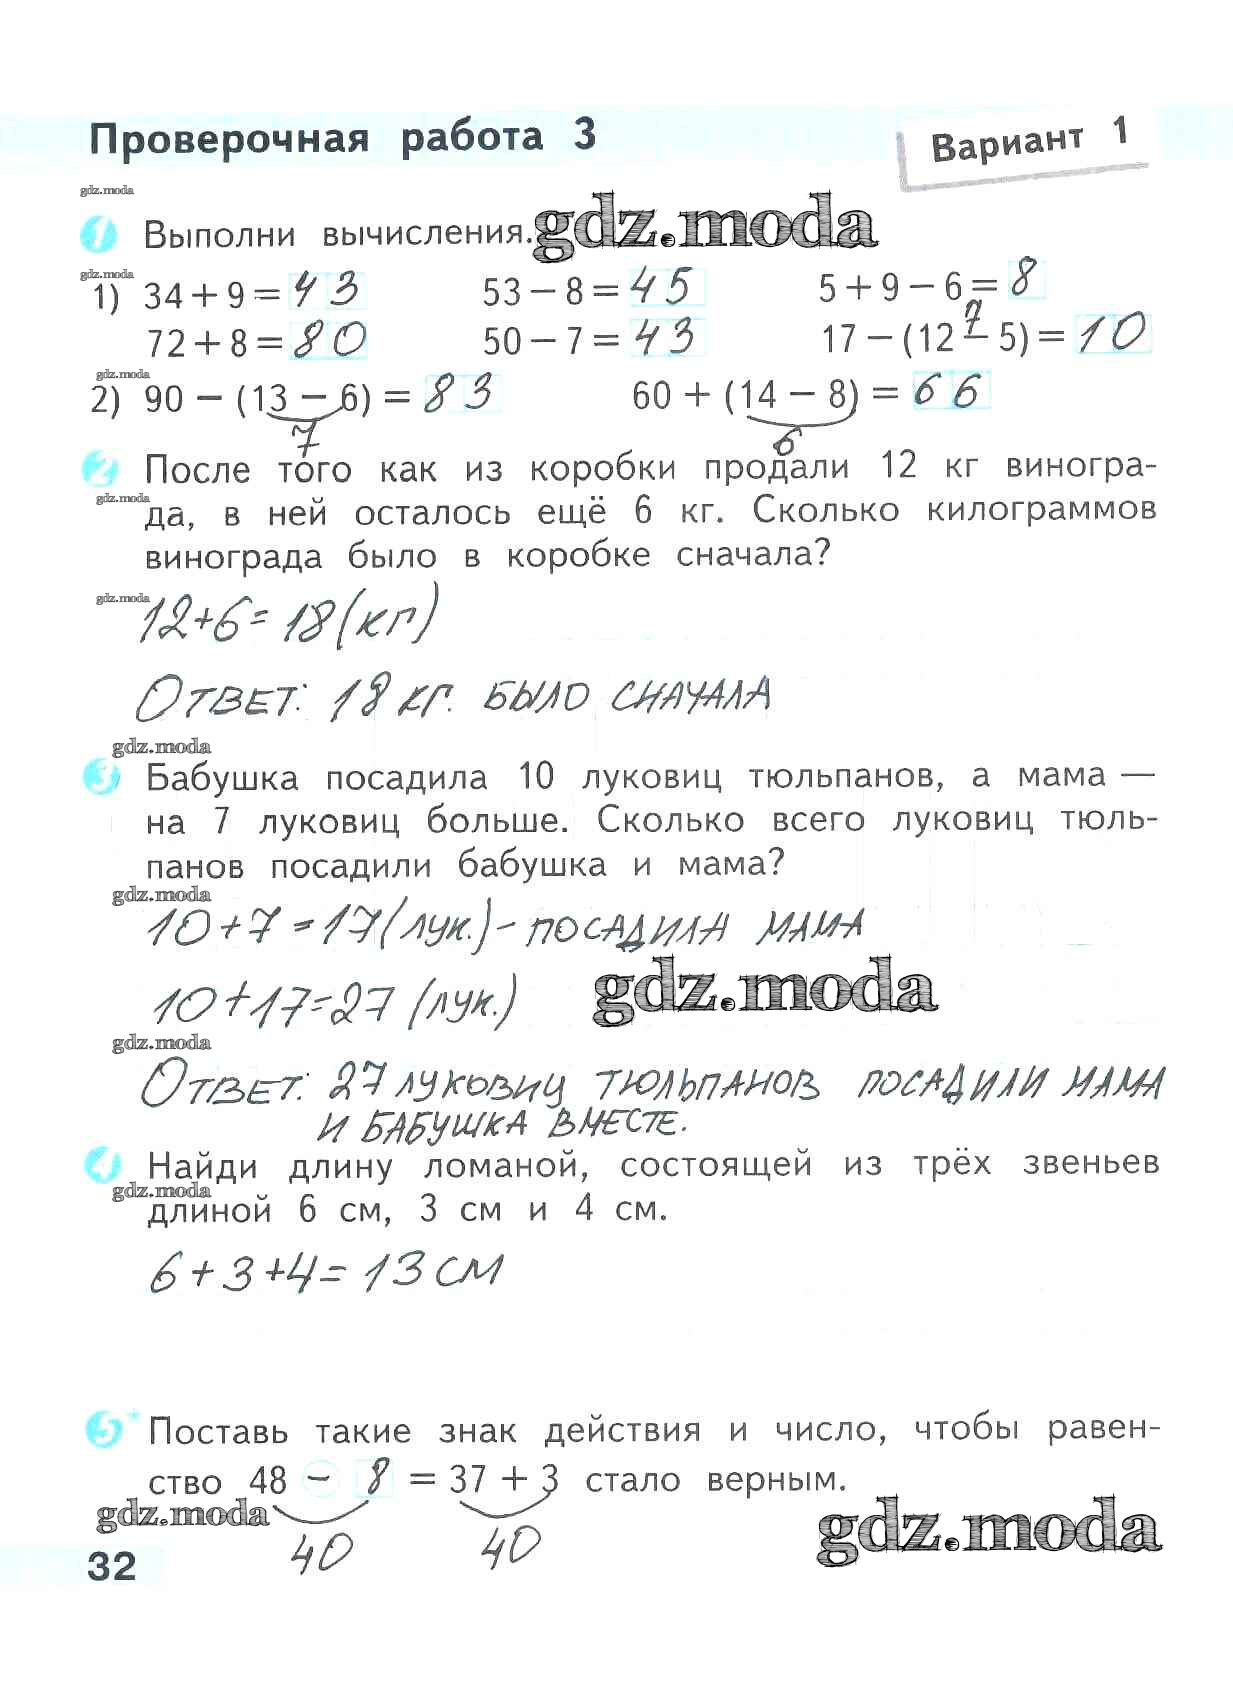 Проверочная работа 3
Вариант 1
gdz.moda
1 Выполни вычисления. gdz.moda
gdz.moda
1) 34 + 9 = 43 53 − 8 = 45 5 + 9 − 6 = 8
7
72 + 8 = 80 50 − 7 = 43 17 − (12 − 5) = 10
gdz.moda
2) 90 − (13 − 6) = 83 60 + (14 − 8) = 66
7 6
2 После того как из коробки продали 12 кг виногра-
gdz.moda
да, в ней осталось ещё 6 кг. Сколько килограммов
винограда было в коробке сначала?
gdz.moda
12+6=18(кг)
Ответ: 18 кг. было сначала
gdz.moda
3 Бабушка посадила 10 луковиц тюльпанов, а мама —
на 7 луковиц больше. Сколько всего луковиц тюль-
панов посадили бабушка и мама?
gdz.moda
10+7=17(лук.)- посадила мама
gdz.moda
10+17=27 (лук.)
gdz.moda
Ответ: 27 луковиц тюльпанов посадили мама
и бабушка вместе.
4 Найди длину ломаной, состоящей из трёх звеньев
gdz.moda
длиной 6 см, 3 см и 4 см.
6+3+4=13 см
5* Поставь такие знак действия и число, чтобы равен-
ство 48 − 8 = 37 + 3 стало верным.
gdz.moda gdz.moda
40 40
32